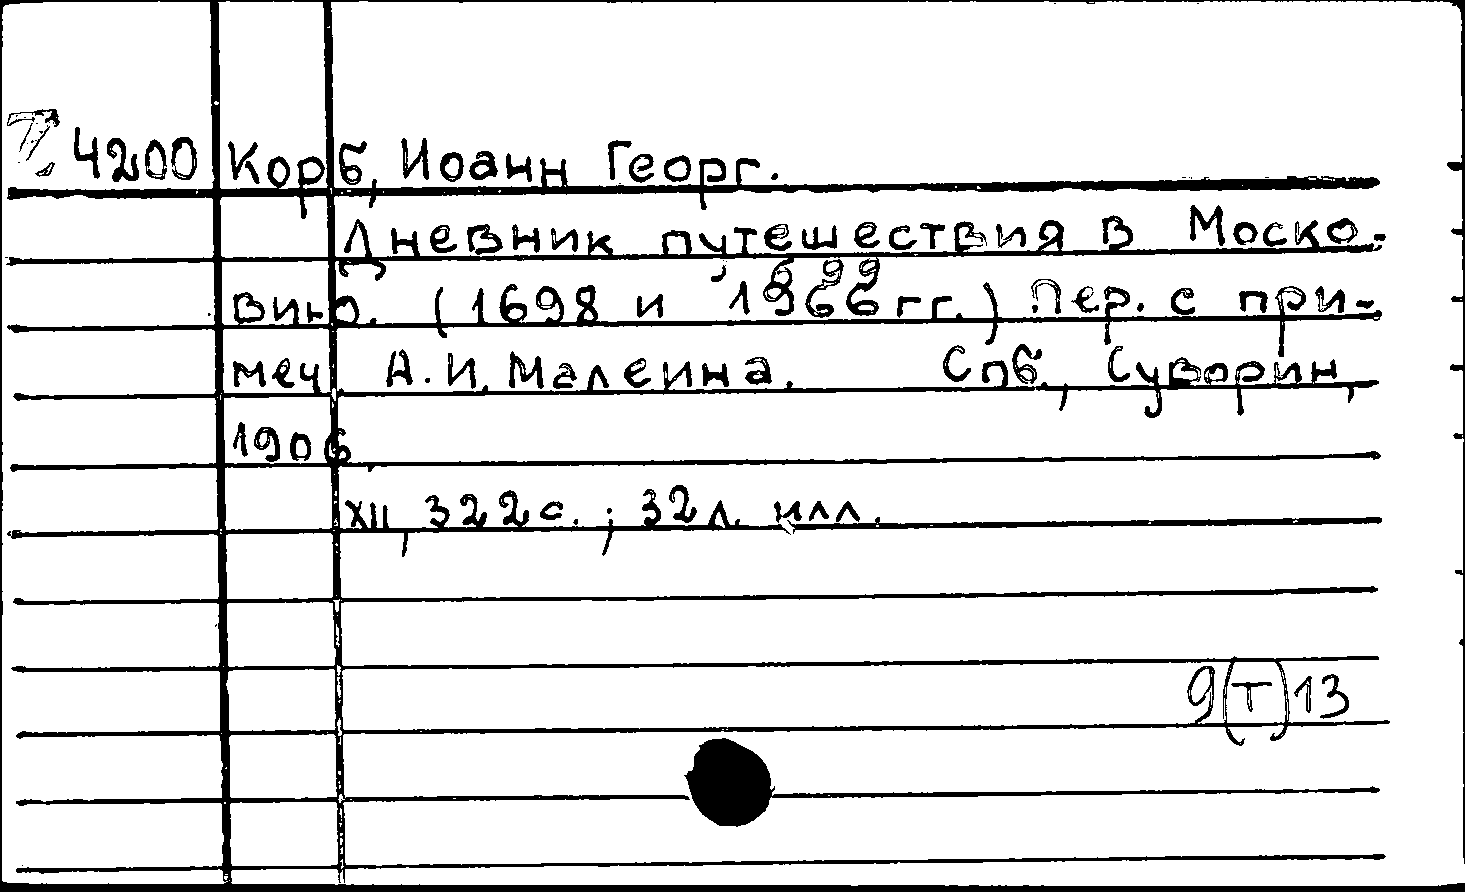 7. 4200 Корб, Иоанн Георг.
Дневник путешествия в Моско-
вию. (1698 и 1699 гг.) Пер. с при-
меч. А.И. Малеина. Спб., Суворин,
1906.
XII, 322 с.; 32 л. илл.
9(Т)13